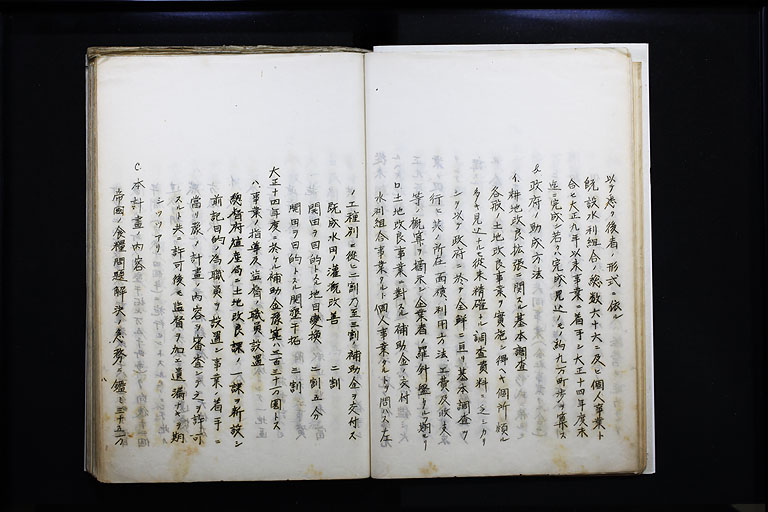 以テ悉ク後者ノ形式ニ依ル
既設水利組合ノ総数六十六ニ及ヒ個人事業ト
合セ大正九年以来事業ニ着手シ大正十四年度末
迄ニ完成シ若クハ完成見込ノモノ約九万町歩ヲ算ス
&政府ノ助成方法
イ、耕地改良拡張ニ関スル基本調査
各般ノ土地改良事業ヲ実施シ得ヘキ個所頗ル
多キ見込ナルモ従来精確ナル調査資料ニ乏シカリ
シヲ以テ政府ニ於テ全鮮ニ亘リ基本調査ヲ
行ヒ其ノ所在、面積、利用方法、工費及収支
等ノ概算ヲ摘示シ企業者ノ羅針盤タルヲ期セリ
ロ土地改良事業ニ対スル補助金ノ交付
水利組合事業タルト個人事業タルトヲ問ハス左
ノ工種別ニ従ヒ二割乃至三割ノ補助金ヲ交付ス
既成水田ノ灌漑改善 二割
開田ヲ目的トスル地目変換 二割五分
開田ヲ目的トスル開墾干拓 三割
大正十四年度ニ於ケル補助金予算ハ三百三十一万円トス
ハ、事業ノ指導及監督ノ職員設置
総督府殖産局ニ土地改良課ノ一課ヲ新設シ
前記目的ノ為職員ヲ設置シ事業ノ着手ニ
当リ夫ノ計画ノ内容ヲ審査シテ之ヲ許可
スルト共ニ許可後モ監督ヲ加ヘ遺漏ナキヲ期
シツツアリ
C.本計画ノ内容
帝国ノ食糧問題解決ノ急務ニ鑑ミ三十五万